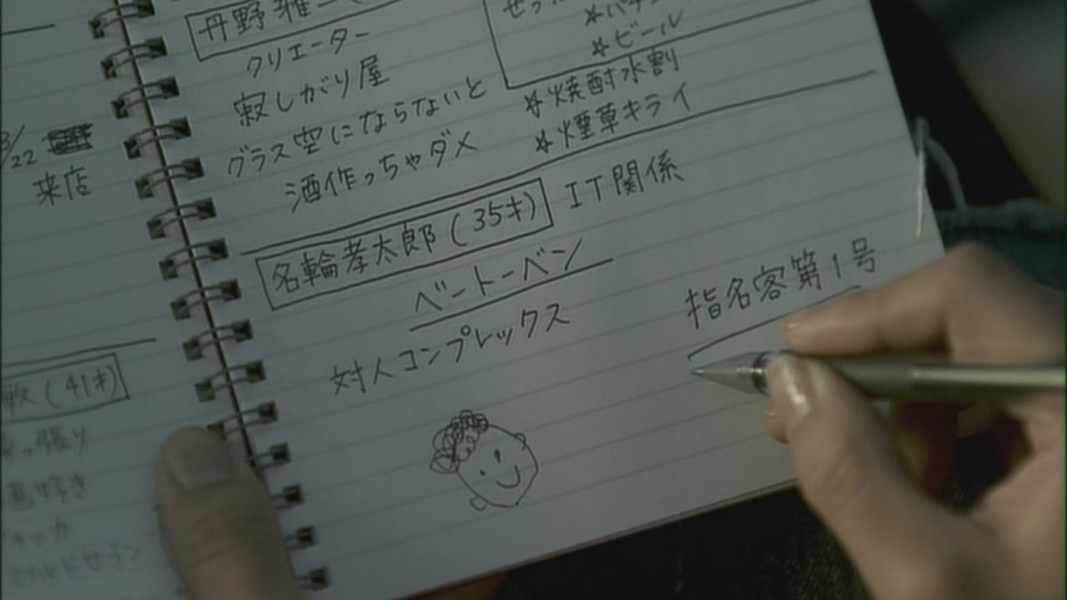 3/22
来店
(41才)
丹野雅
クリエーター
寂しがり屋
グラス空にならないと
酒作っちゃダメ
*ビール
*焼酎水割
*煙草キライ
名輪孝太郎(35才)
IT関係
ベートーベン
対人コンプレックス
指名客第1号